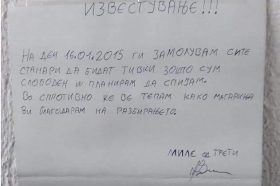 ИЗВЕСТУВАЊЕ!!!
НА ДЕН 16.01.2015 ГИ ЗАМОЛУВАМ СИТЕ
СТАНАРИ ДА БИДАТ ТИВКИ ЗОШТО СУМ
СЛОБОДЕН И ПЛАНИРАМ ДА СПИЈАМ.
ВО СПРОТИВНО ЌЕ ВЕ ТЕПАМ КАКО МАГАРИЊА
ВИ БЛАГОДАРАМ НА РАЗБИРАЊЕТО.
МИЛЕ од ТРЕТИ